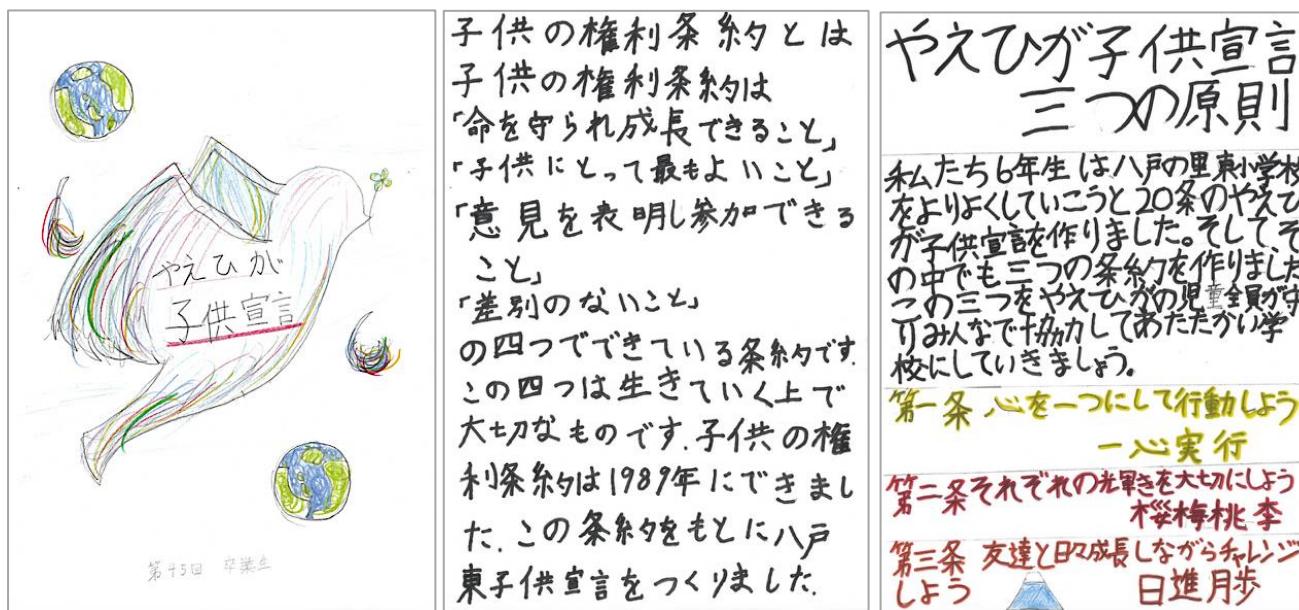 やえひが
子供宣言
第45回 卒業生
子供の権利条約とは
子供の権利条約は
「命を守られ成長できること」
「子供にとって最もよいこと」
「意見を表明し参加できる
こと」
「差別のないこと」
の四つでできている条約です.
この四つは生きていく上で
大切なものです.子供の権
利条約は1989年にできまし
た.この条約をもとに八戸
東子供宣言をつくりました.
やえひが子供宣言
三つの原則
私たち6年生は八戸の里東小学校
をよりよくしていこうと20条のやえひ
が子供宣言を作りました。そして、そ
の中でも三つの条約を作りました
この三つをやえひがの児童全員が守
りみんなで協力してあたたかい学
校にしていきましょう。
第一条 心を一つにして行動しよう
一心実行
第二条それぞれの光輝きを大切にしよう
桜梅桃李
第三条 友達と日々成長しながらチャレンジ
しよう 日進月歩